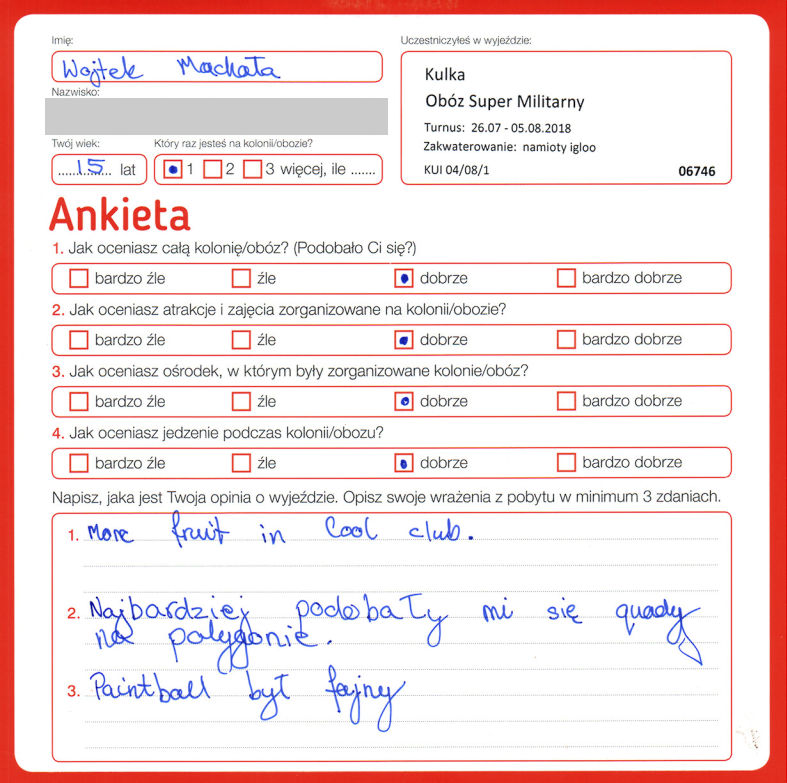 Imię:
Wojtek Machała
Nazwisko:
Twój wiek:
15 lat
Który raz jesteś na kolonii/obozie?
1 2 3 więcej, ile .......
Uczestniczyłeś w wyjeździe:
Kulka
Obóz Super Militarny
Turnus: 26.07 - 05.08.2018
Zakwaterowanie: namioty igloo
KUI 04/08/1 06746
Ankieta
1. Jak oceniasz całą kolonię/obóz? (Podobało Ci się?)
bardzo źle źle dobrze bardzo dobrze
2. Jak oceniasz atrakcje i zajęcia zorganizowane na kolonii/obozie?
bardzo źle źle dobrze bardzo dobrze
3. Jak oceniasz ośrodek, w którym były zorganizowane kolonie/obóz?
bardzo źle źle dobrze bardzo dobrze
4. Jak oceniasz jedzenie podczas kolonii/obozu?
bardzo źle źle dobrze bardzo dobrze
Napisz, jaka jest Twoja opinia o wyjeździe. Opisz swoje wrażenia z pobytu w minimum 3 zdaniach.
1. More fruit in Cool club.
2. Najbardziej podobały mi się quady
na polygonie.
3. Paintball był fajny